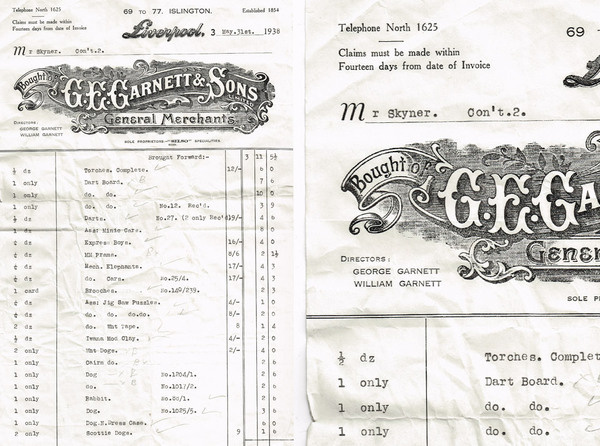 69 TO 77. ISLINGTON.
Established 1854
Telephone North 1625
Claims must be made within
Fourteen days from date of Invoice
Liverpool, 3 May.31st. 1938
Mr Skyner. Con't.2.
Bought of
G.E.GARNETT & SONS
LIMITED
General Merchants.
DIRECTORS:
GEORGE GARNETT
WILLIAM GARNETT
SOLE PROPRIETORS
SPECIALITIES
Brought Forward:- 3 11 5½
½ dz Torches. Complete. 12/- 6 0
1 only Dart Board. 7 6
1 only do. do. 10 0
1 only do. do. No.12. Rec'd. 3 9
Darts. No.27. (2 only Rec'd) 19/- 4 6
1 dz Asst Minic Cars. 8 0
dz Expres Boys. 16/- 4 0
dz Frams. 8/6 2 1½
dz Mech. Elephants. 17/- 4 3
dz do. Cars. No.25/4. 17/- 4 3
1 card Brooches. No.149/239. 2 3
dz Asst Jig Saw Puzzles. 4/- 1 0
dz do. do. do.do. 8/- 2 0
2 dz do. Tape. 8 1 4
dz Clay. 4/- 1 0
2 only Dogs. 2/- 4 0
1 only Cairn do. 2 6
1 only Dog No.1204/1. 2 6
1 only do. No.1017/2. 2 6
1 only Rabbit. 2 6
1 only Dog. No.1025/5. 3 6
1 only Dress Case. 6 0
2 only Scottie Dogs. 9 1 6
69
Telephone North 1625
Claims must be made within
Fourteen days from date of Invoice
Mr Skyner. Con't.2.
Bought of
G.E.GA
Gener
DIRECTORS:
GEORGE GARNETT
WILLIAM GARNETT
SOLE P
½ dz Torches. Complet
1 only Dart Board.
1 only do. do.
1 only do. do.